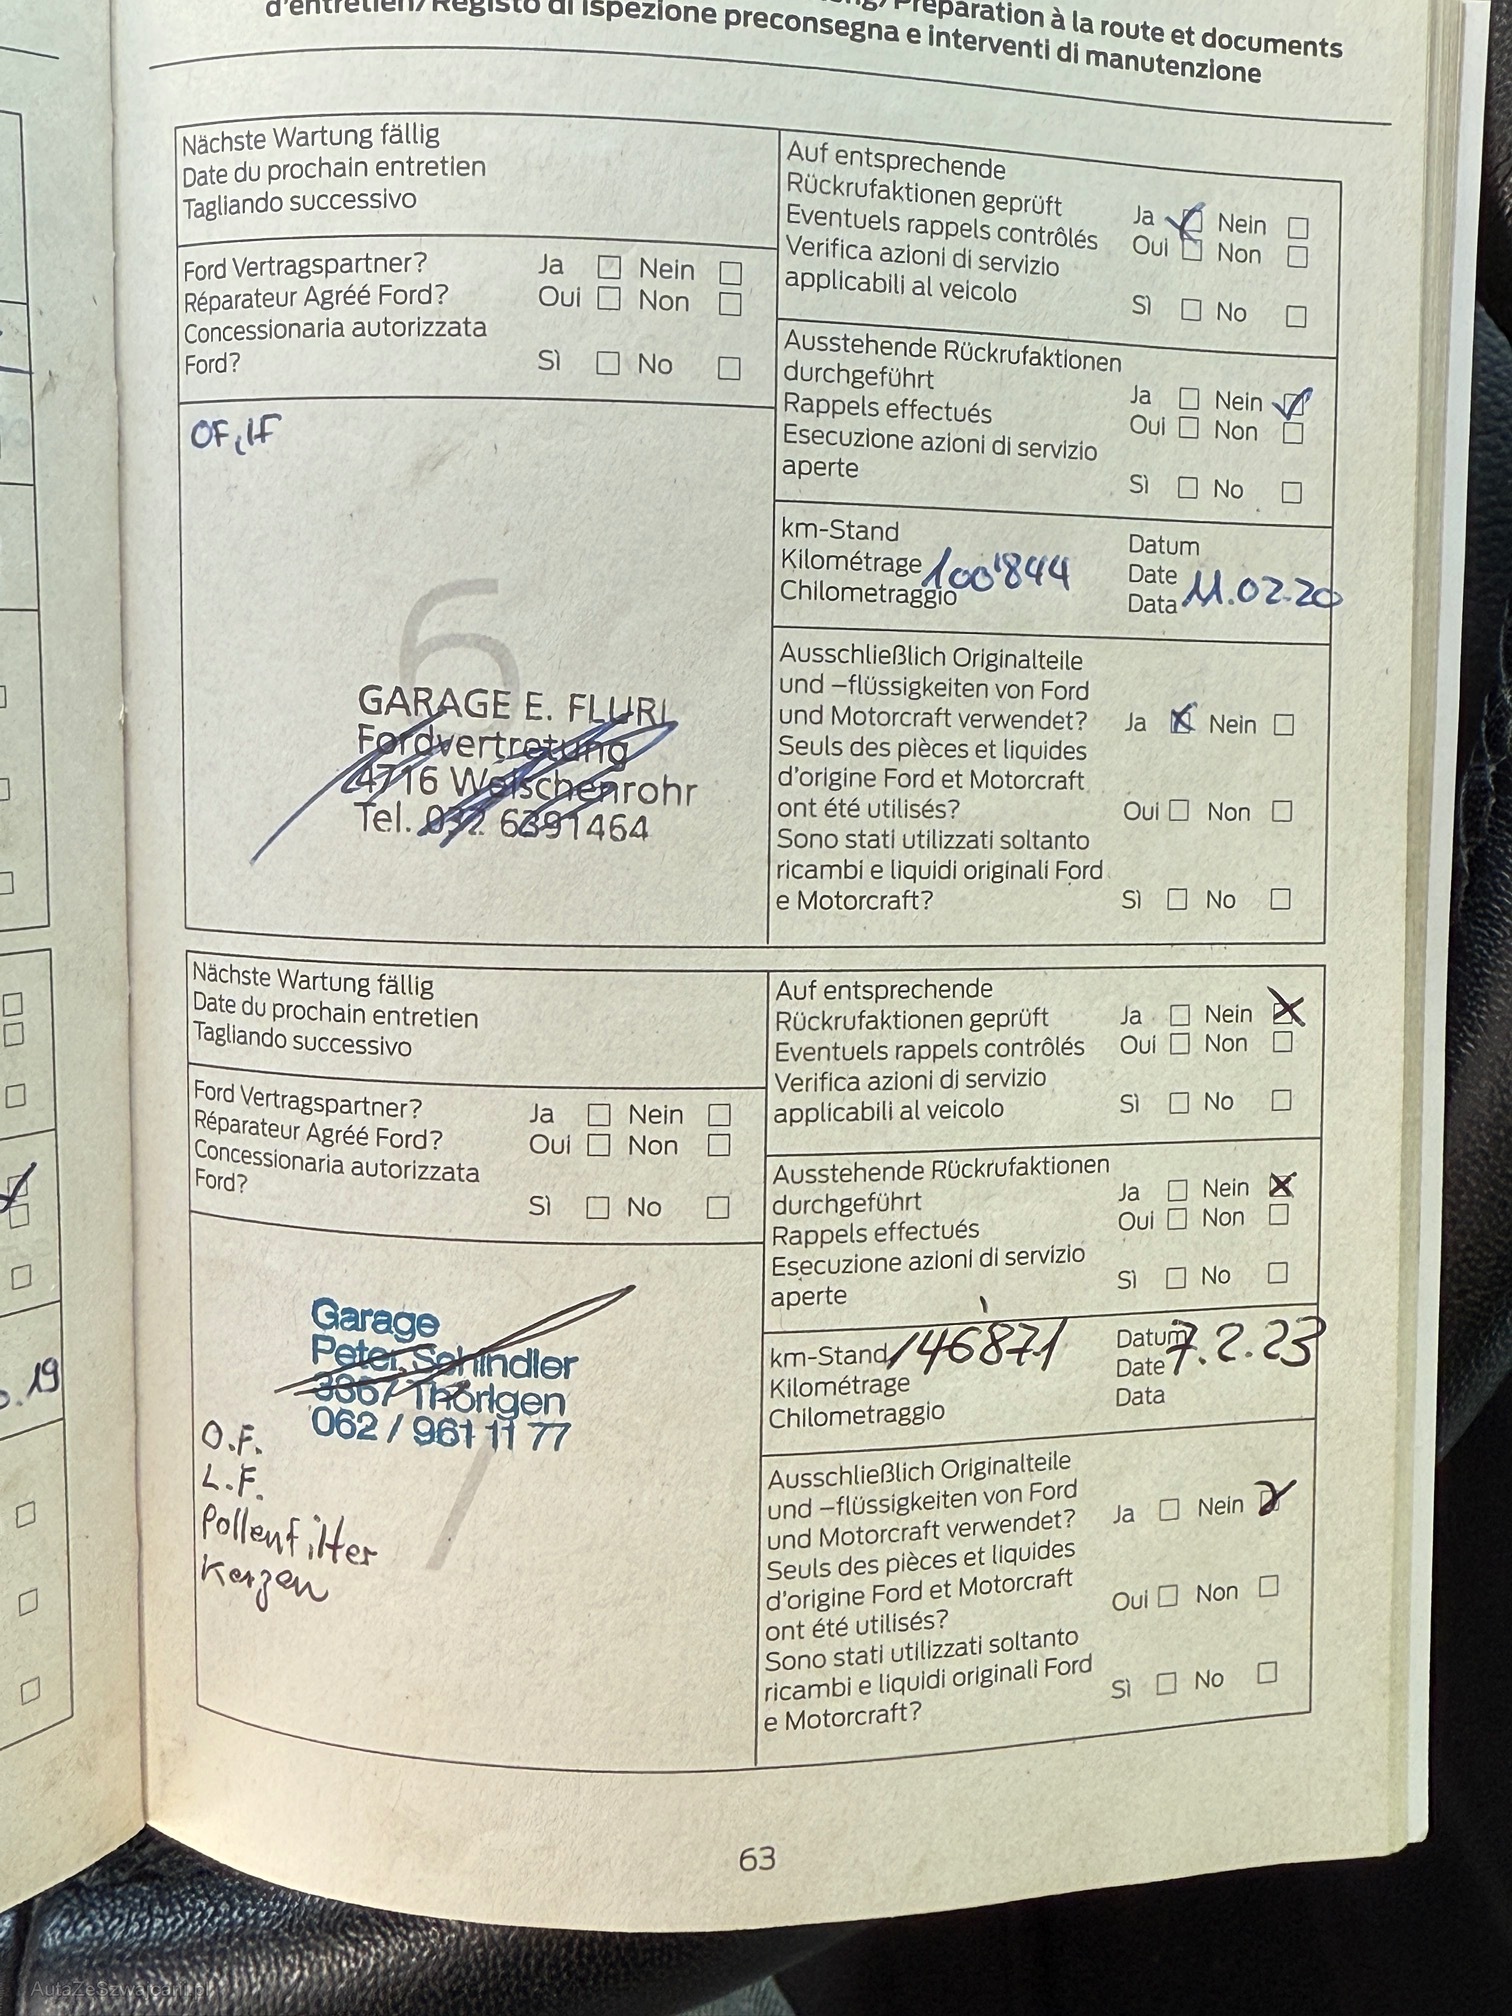 Preparation à la route et documents
d'entretien/Registo di ispezione preconsegna e interventi di manutenzione
Nächste Wartung fällig
Date du prochain entretien
Tagliando successivo
Ford Vertragspartner? Ja Nein
Réparateur Agréé Ford? Oui Non
Concessionaria autorizzata
Ford? Sì No
OF, IF
6
GARAGE E. FLURI
Fordvertretung
4716 Welschenrohr
Tel. 032 6391464
Auf entsprechende
Rückrufaktionen geprüft Ja Nein
Eventuels rappels contrôlés Oui Non
Verifica azioni di servizio
applicabili al veicolo Sì No
Ausstehende Rückrufaktionen
durchgeführt Ja Nein
Rappels effectués Oui Non
Esecuzione azioni di servizio
aperte Sì No
km-Stand Datum
Kilométrage 100'844 Date 11.02.20
Chilometraggio Data
Ausschließlich Originalteile
und –flüssigkeiten von Ford
und Motorcraft verwendet? Ja Nein
Seuls des pièces et liquides
d'origine Ford et Motorcraft
ont été utilisés? Oui Non
Sono stati utilizzati soltanto
ricambi e liquidi originali Ford
e Motorcraft? Sì No
Nächste Wartung fällig
Date du prochain entretien
Tagliando successivo
Ford Vertragspartner? Ja Nein
Réparateur Agréé Ford? Oui Non
Concessionaria autorizzata
Ford? Sì No
Garage
Peter Schindler
3367 Thörigen
062 / 961 11 77
7
O.F.
L.F.
Pollenfilter
Kerzen
Auf entsprechende
Rückrufaktionen geprüft Ja Nein
Eventuels rappels contrôlés Oui Non
Verifica azioni di servizio
applicabili al veicolo Sì No
Ausstehende Rückrufaktionen
durchgeführt Ja Nein
Rappels effectués Oui Non
Esecuzione azioni di servizio
aperte Sì No
km-Stand 146'871 Datum 7.2.23
Kilométrage Date
Chilometraggio Data
Ausschließlich Originalteile
und –flüssigkeiten von Ford
und Motorcraft verwendet? Ja Nein
Seuls des pièces et liquides
d'origine Ford et Motorcraft
ont été utilisés? Oui Non
Sono stati utilizzati soltanto
ricambi e liquidi originali Ford
e Motorcraft? Sì No
63
.19
AutaZeSzwajcarii.pl